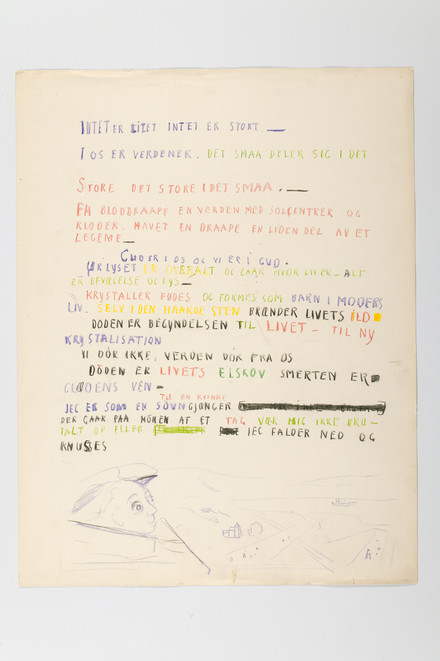 INTET ER LITET INTET ER STORT —
I OS ER VERDENER. DET SMAA DELER SIG I DET
STORE DET STORE I DET SMAA. —
EN BLODDRAAPE EN VERDEN MED SOLCENTRER OG
KLODER. HAVET EN DRAAPE EN LIDEN DEL AV ET
LEGEME —
GUD ER I OS OG VI ER I GUD.
URLYSET ER OVERALT OG GAAR HVOR LIV ER – ALT
ER BEVÆGELSE OG LYS –
KRYSTALLER FØDES OG FORMES SOM BARN I MODERS
LIV. SELV I DEN HAARDE STEN BRÆNDER LIVETS ILD
DØDEN ER BEGYNDELSEN TIL LIVET – TIL NY
KRYSTALISATION
VI DÖR IKKE, VERDEN DÖR FRA OS
DÖDEN ER LIVETS ELSKOV SMERTEN ER
GLÆDENS VEN –
TIL EN KVINDE
JEG ER SOM EN SÖVNGJÆNGER
DER GAAR PAA MÖNEN AF ET TAG VÆK MIG IKKE BRU–
TALT OP ELLER JEG FALDER NED OG
KNUSES